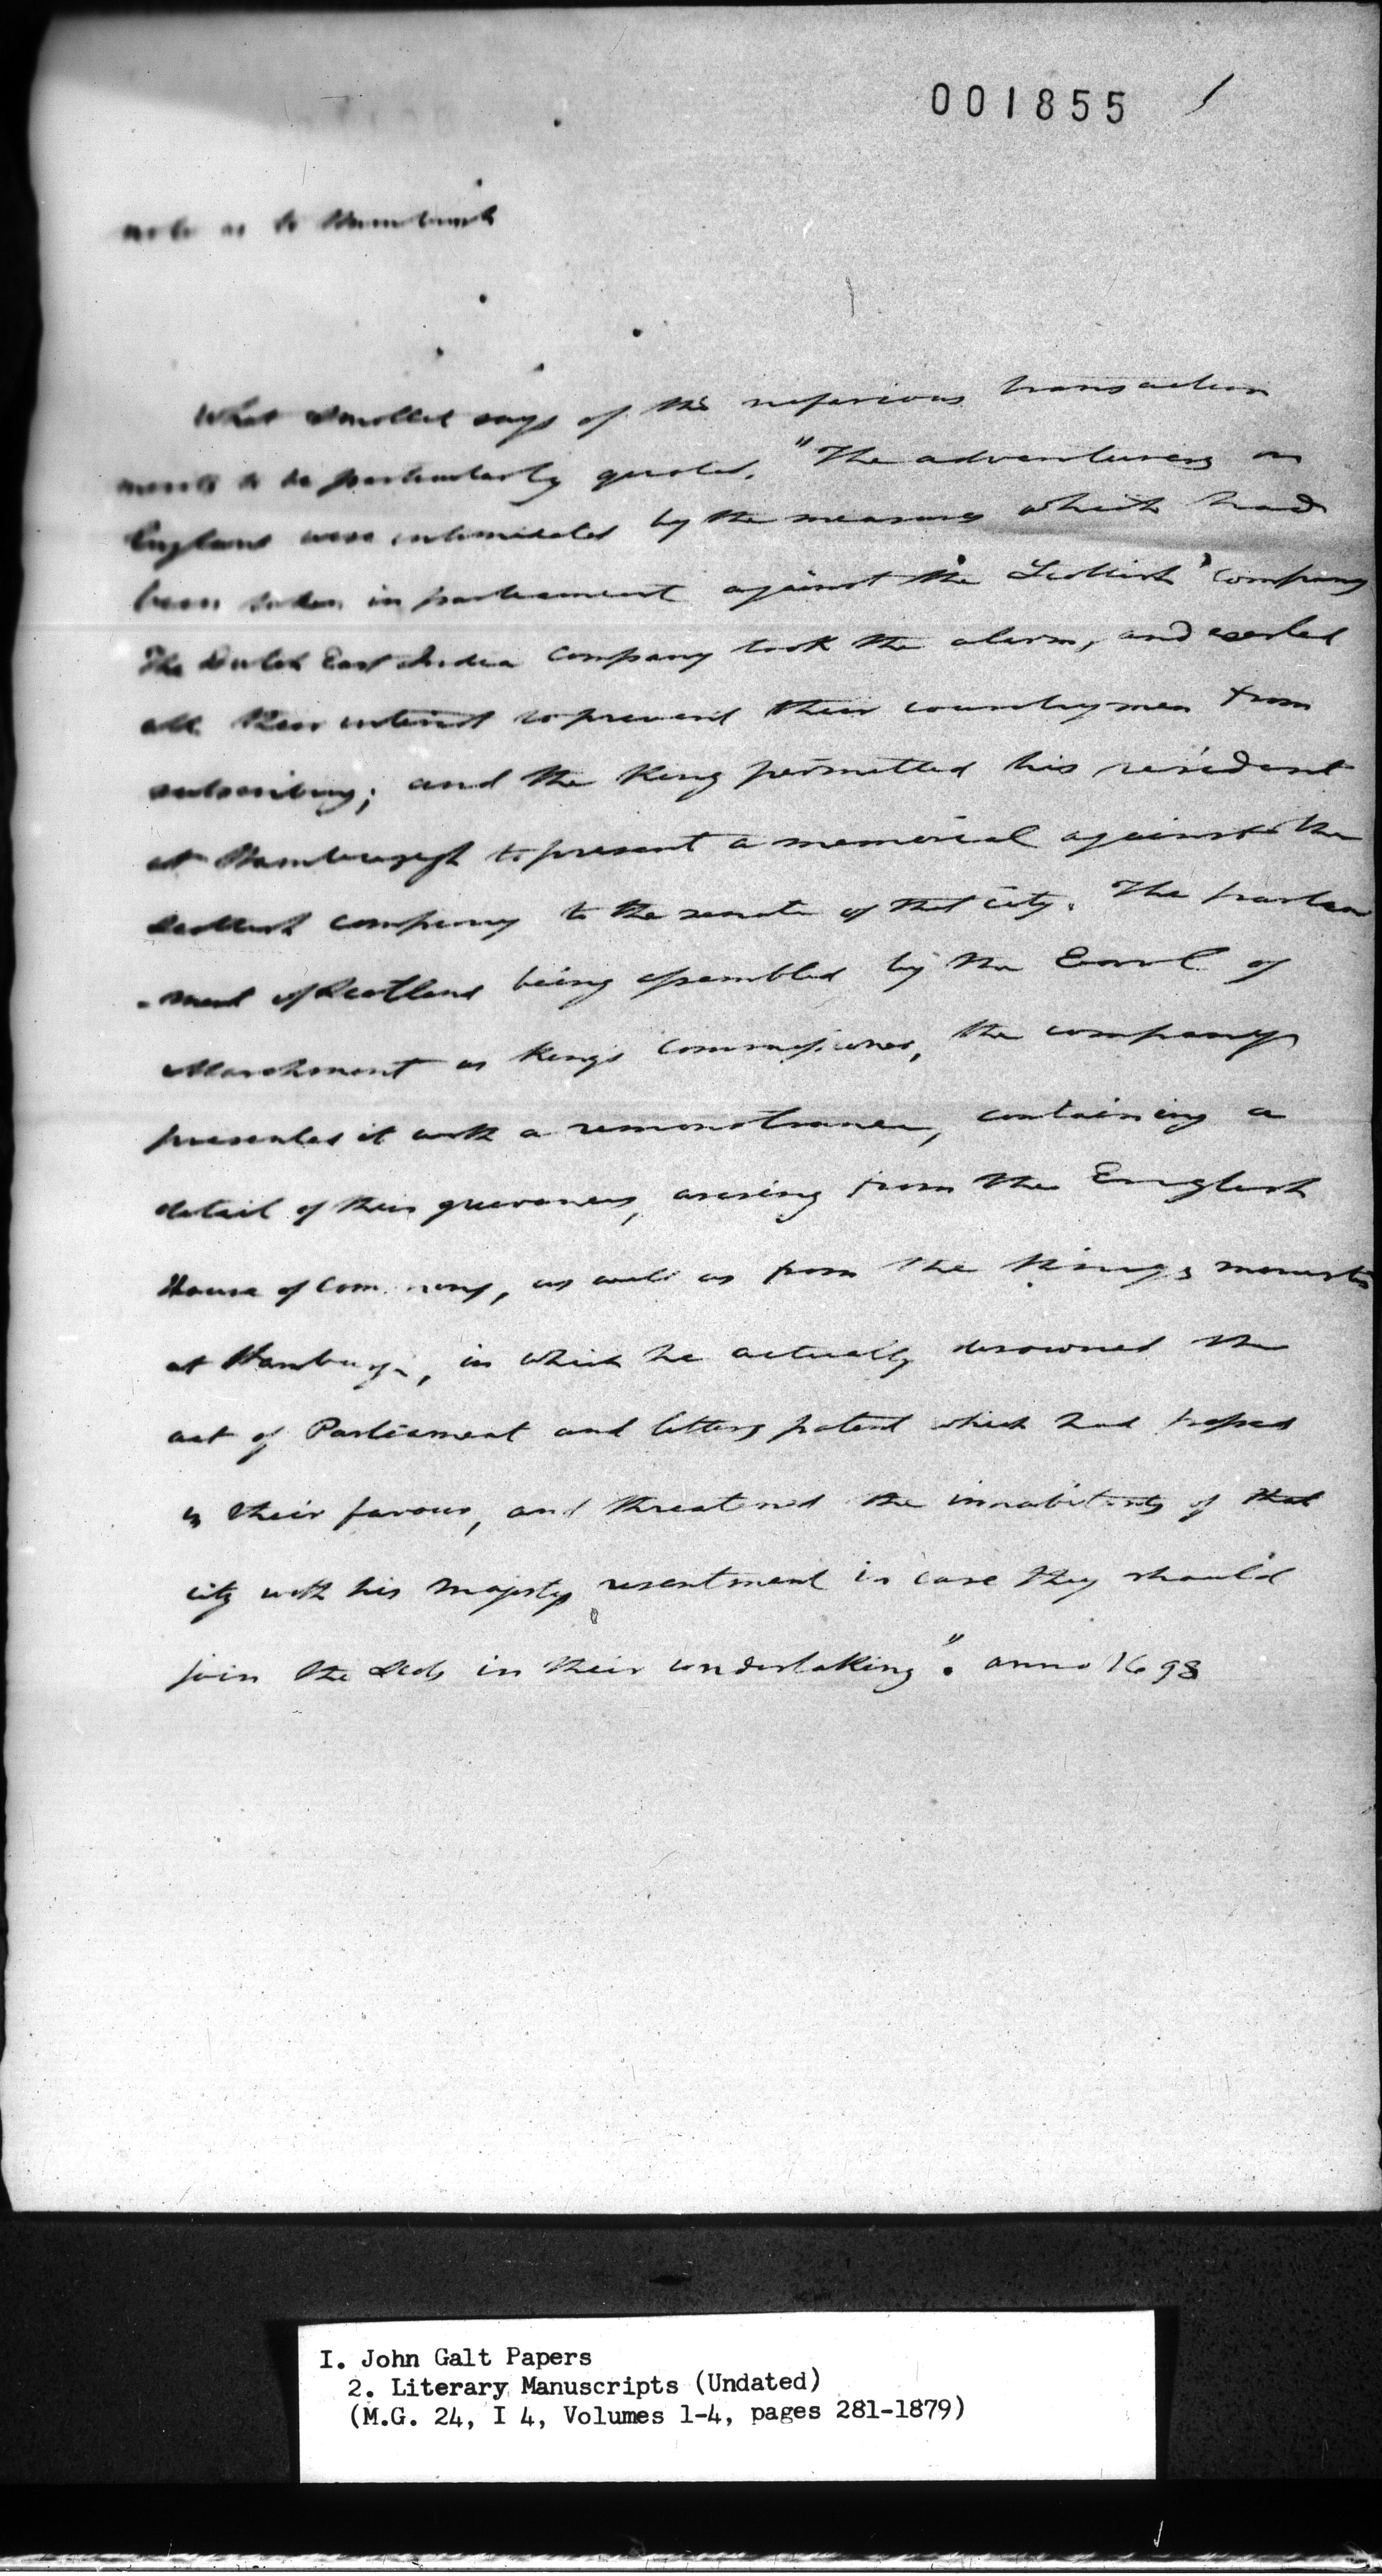 001855
note as to Hamburgh
What Smollet says of this nefarious transaction
merits to be particularly quoted. "The adventurers in
England were intimidated by the measures which had
been taken in parliament against the Scottish company
The Dutch East India Company took the alarm, and exerted
all their interest to prevent their countrymen from
subscribing; and the King permitted his resident
at Hamburgh to present a memorial against the
Scottish company to the senate of that city. The parlia
-ment of Scotland being assembled by the Earl of
Marchmont as Kings commissioner, the company
presented it with a remonstrance, containing a
detail of their grievances, arising from the English
House of Commons, as well as from the Kings
at Hamburgh, in which he actually disowned the
act of Parliament and letters patent which had passed
in their favour, and threatened the inhabitants of that
city with his Majestys resentment in case they should
join the Scots in their undertaking". anno 1698
I. John Galt Papers
2. Literary Manuscripts (Undated)
(M.G. 24, I 4, Volumes 1-4, pages 281-1879)